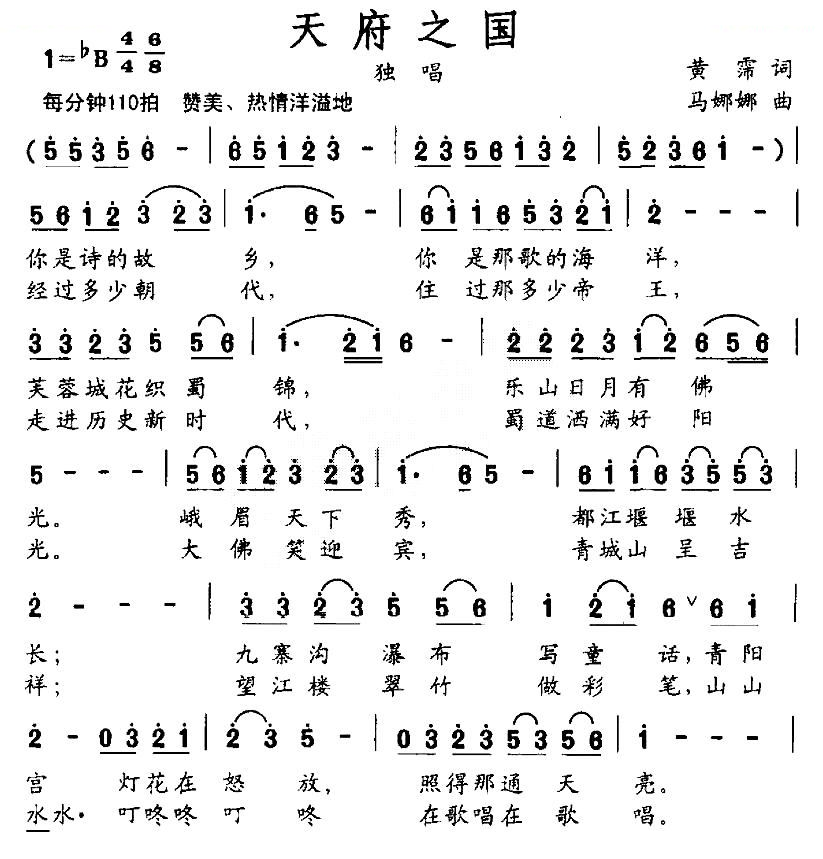 天府之国
1=♭B 4/4 6/8
独唱
黄霈 词
每分钟110拍 赞美、热情洋溢地
马娜娜 曲
(5535 6 - | 6512 3 - | 2356 132 | 5236 1 - ) |
5612 3 23 | 1· 6 5 - | 61 16 53 21 | 2 - - - |
你是诗的故 乡, 你 是那歌的海 洋,
经过多少朝 代, 住 过那多少帝 王,
3323 5 56 | 1· 21 6 - | 2223 12 656 |
芙蓉城花织蜀 锦, 乐山日月有 佛
走进历史新时 代, 蜀道洒满好 阳
5 - - - | 56 12 3 23 | 1· 6 5 - | 61 16 35 53 |
光。 峨眉天下 秀, 都江堰堰水
光。 大佛笑迎 宾, 青城山呈吉
2 - - - | 33 23 5 56 | 1 21 6 ∨ 61 |
长; 九寨沟瀑布 写童话,青阳
祥; 望江楼翠竹 做彩笔,山山
2 - 03 21 | 23 5 - | 03 23 53 56 | 1 - - - |
宫 灯花在怒 放, 照得那通天 亮。
水水· 叮咚咚叮 咚 在歌唱在歌 唱。